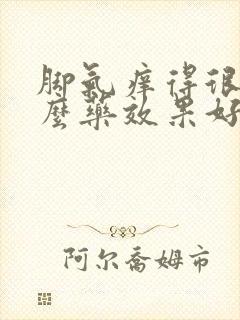 脚氣痒得很
麼藥效果好
阿尔喬姆市